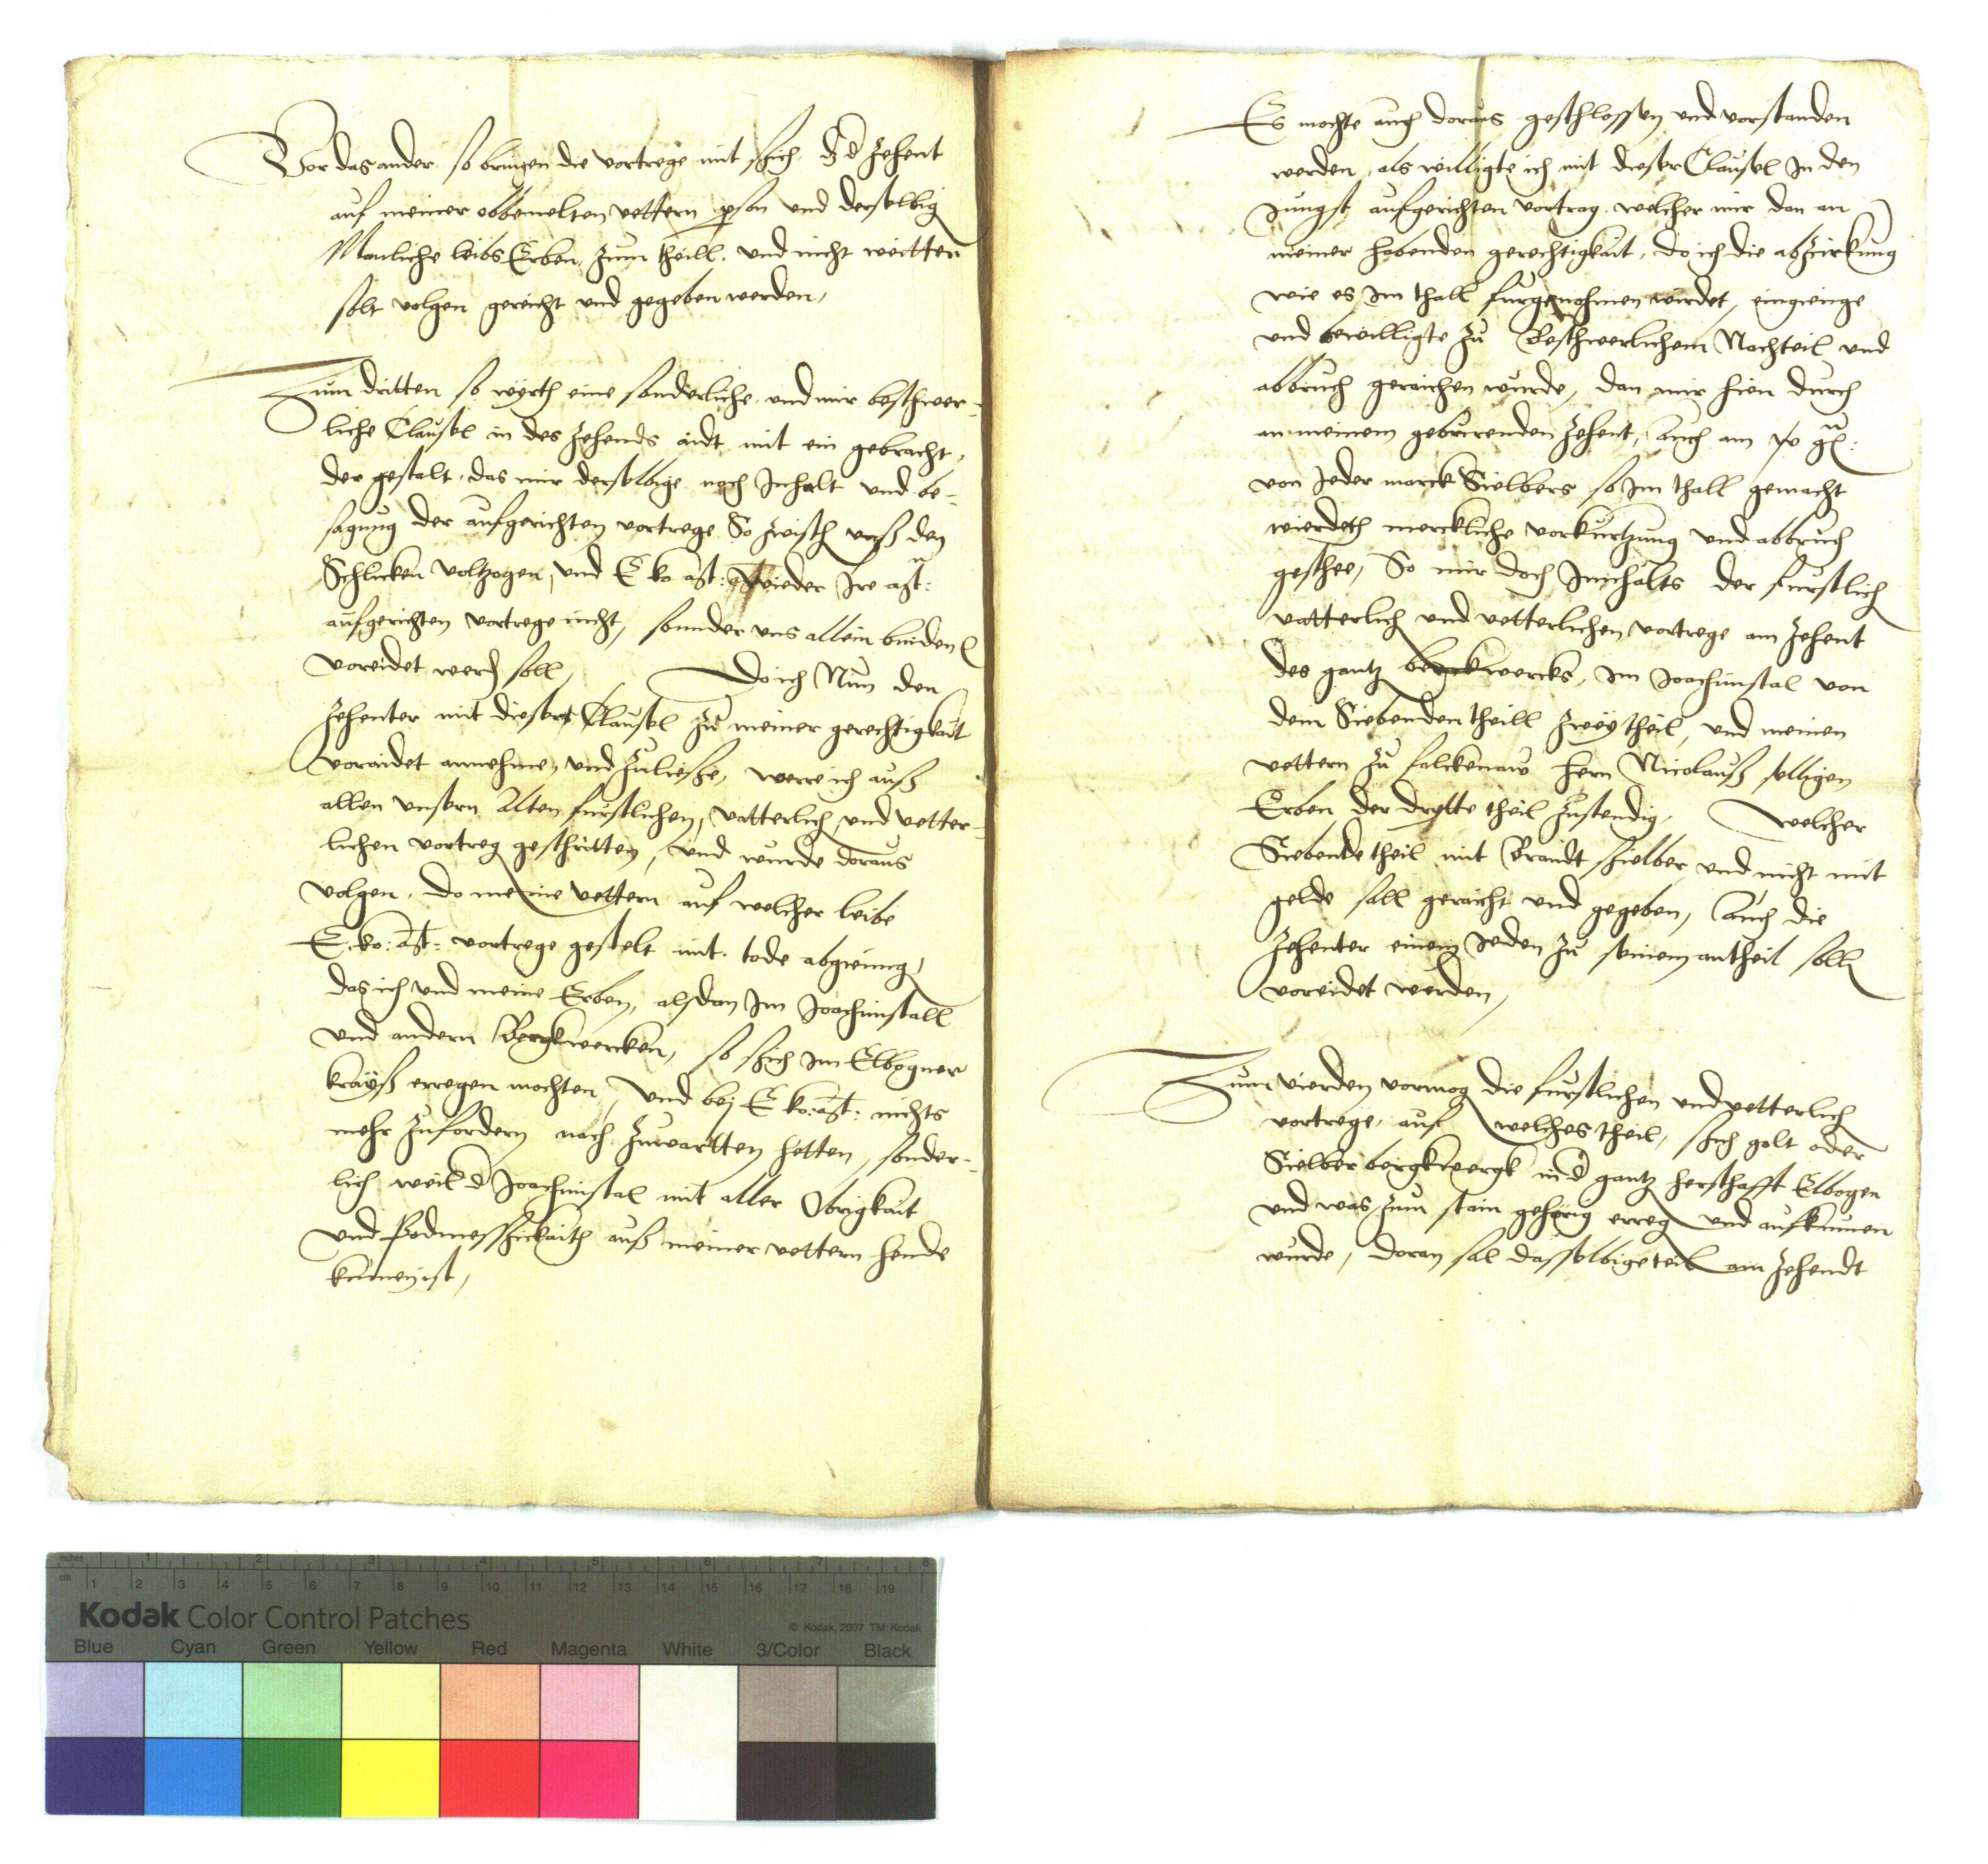 Vor das ander. so bringen die vortrege mit sich, dz d Zehent
auf meiner obbemelten vettern person und derselbig
Manliche leibs Erben, zum theill, und nicht weitter
solt volgen gereicht und gegeben werden,
Zum dritten so wyrth eine sonderliche, und mir beschwer-
liche Clausel in des Zehends aidt mit ein gebracht,
der gestalt, das mir derselbige nach Inhalt und be-
sagung der aufgerichten vortrege So zwisch unß den
Schlicken voltzogen, und E ko Mt: wieder Ire Mt:
aufgerichten vortrege nicht, sonnder uns allein binden
voreidet werd soll, Do ich Nun den
Zehenter mit dieser Clausel zu meiner gerechtigkait
voraidet annehme, und zuliesse, werre ich auß
allen unsern alten furstlichen, vatterlich und vetter-
lichen vortreg geschritten, und wurde doraus
volgen, do meine vettern auf welcher leibe
E. ko: Mt: vortrege gestelt mit tode abgienng,
das ich und meine Erben, alsdan Im Joachimstall
und andern Bergkwercken, so sich im Elbogner
krayß erregen mochten, und bej E ko: Mt: nichts
mehr zufordern noch zuwartten hetten, sonder-
lich weil d Joachimstal mit aller Obrigkait
und Bodmessickaith auß meiner vettern hende
kumen ist,
Es mochte auch doraus geschlossen und vorstanden
werden, als willigte ich mit dieser Clausel In den
Jungst aufgerichten vortrag, welcher mir dan an
meiner habenden gerechtigkait, do ich die abzirkung
wie es Im thall furgenohmen wirdet, eingienge
und bewilligte zu Beschwerlichem Nachteil und
abbruch geraichen wurde, dan mir hien durch
an meinem geburenden Zehent, Auch am gl:
von Jeder marck Sielbers so Im thall gemacht
wierdeth merckliche vorkurtzung und abbruch
geschee, So mir doch Innhalts der furstlich
vatterlich und vetterlichen vortrege am Zehent
des gantz bergkwercks, im Joachimstal von
dem Siebenden theill zwey theil, und meinen
vettern zu falckenaw hern Nicolauß seligen
Erben der drytte theil zustendig, Welcher
Siebende theil mit Brandt sielber und nicht mit
gelde soll geraicht und gegeben, Auch die
Zehenter einem Jeden zu seinem antheil soll
voreidet werden,
Zum vierden vormog die furstlichen und vetterlich
vortrege, auf welches theil, sich golt oder
Sielber bergkwergk in d gantz herschafft Elbogen
und was zum stain gehorig erreg und aufkumen
wurde, doran sal dasselbige teil am Zehendt
Kodak Color Control Patches
© Kodak, 2007 TM: Kodak
Blue Cyan Green Yellow Red Magenta White 3/Color Black